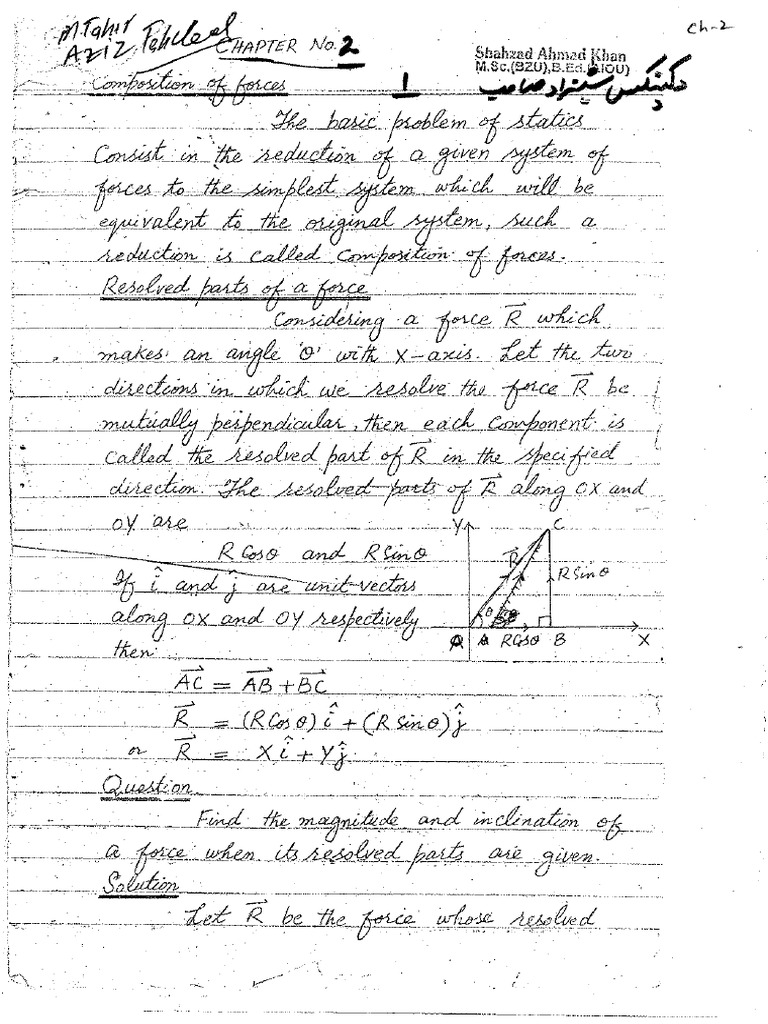 Ch-2
M. Tahir
AZIZ
CHAPTER No. 2
Shahzad Ahmad Khan
M.Sc.(BZU),B.Ed.(AIOU)
Composition of forces
1
The basic problem of statics
Consist in the reduction of a given system of
forces to the simplest system which will be
equivalent to the original system, such a
reduction is called composition of forces.
Resolved parts of a force
Considering a force R⃗ which
makes an angle 'θ' with X-axis. Let the two
directions in which we resolve the force R⃗ be
mutually perpendicular, then each component is
called the resolved part of R⃗ in the specified
direction. The resolved parts of R⃗ along OX and
OY are
R Cosθ and R Sinθ
If î and ĵ are unit vectors
along OX and OY respectively
then
Y C
R⃗
R Sinθ
θ
O A RCosθ B X
AC⃗ = AB⃗ + BC⃗
R⃗ = (R Cosθ) î + (R Sinθ) ĵ
or R⃗ = X î + Y ĵ
Question
Find the magnitude and inclination of
a force when its resolved parts are given.
Solution
Let R⃗ be the force whose resolved